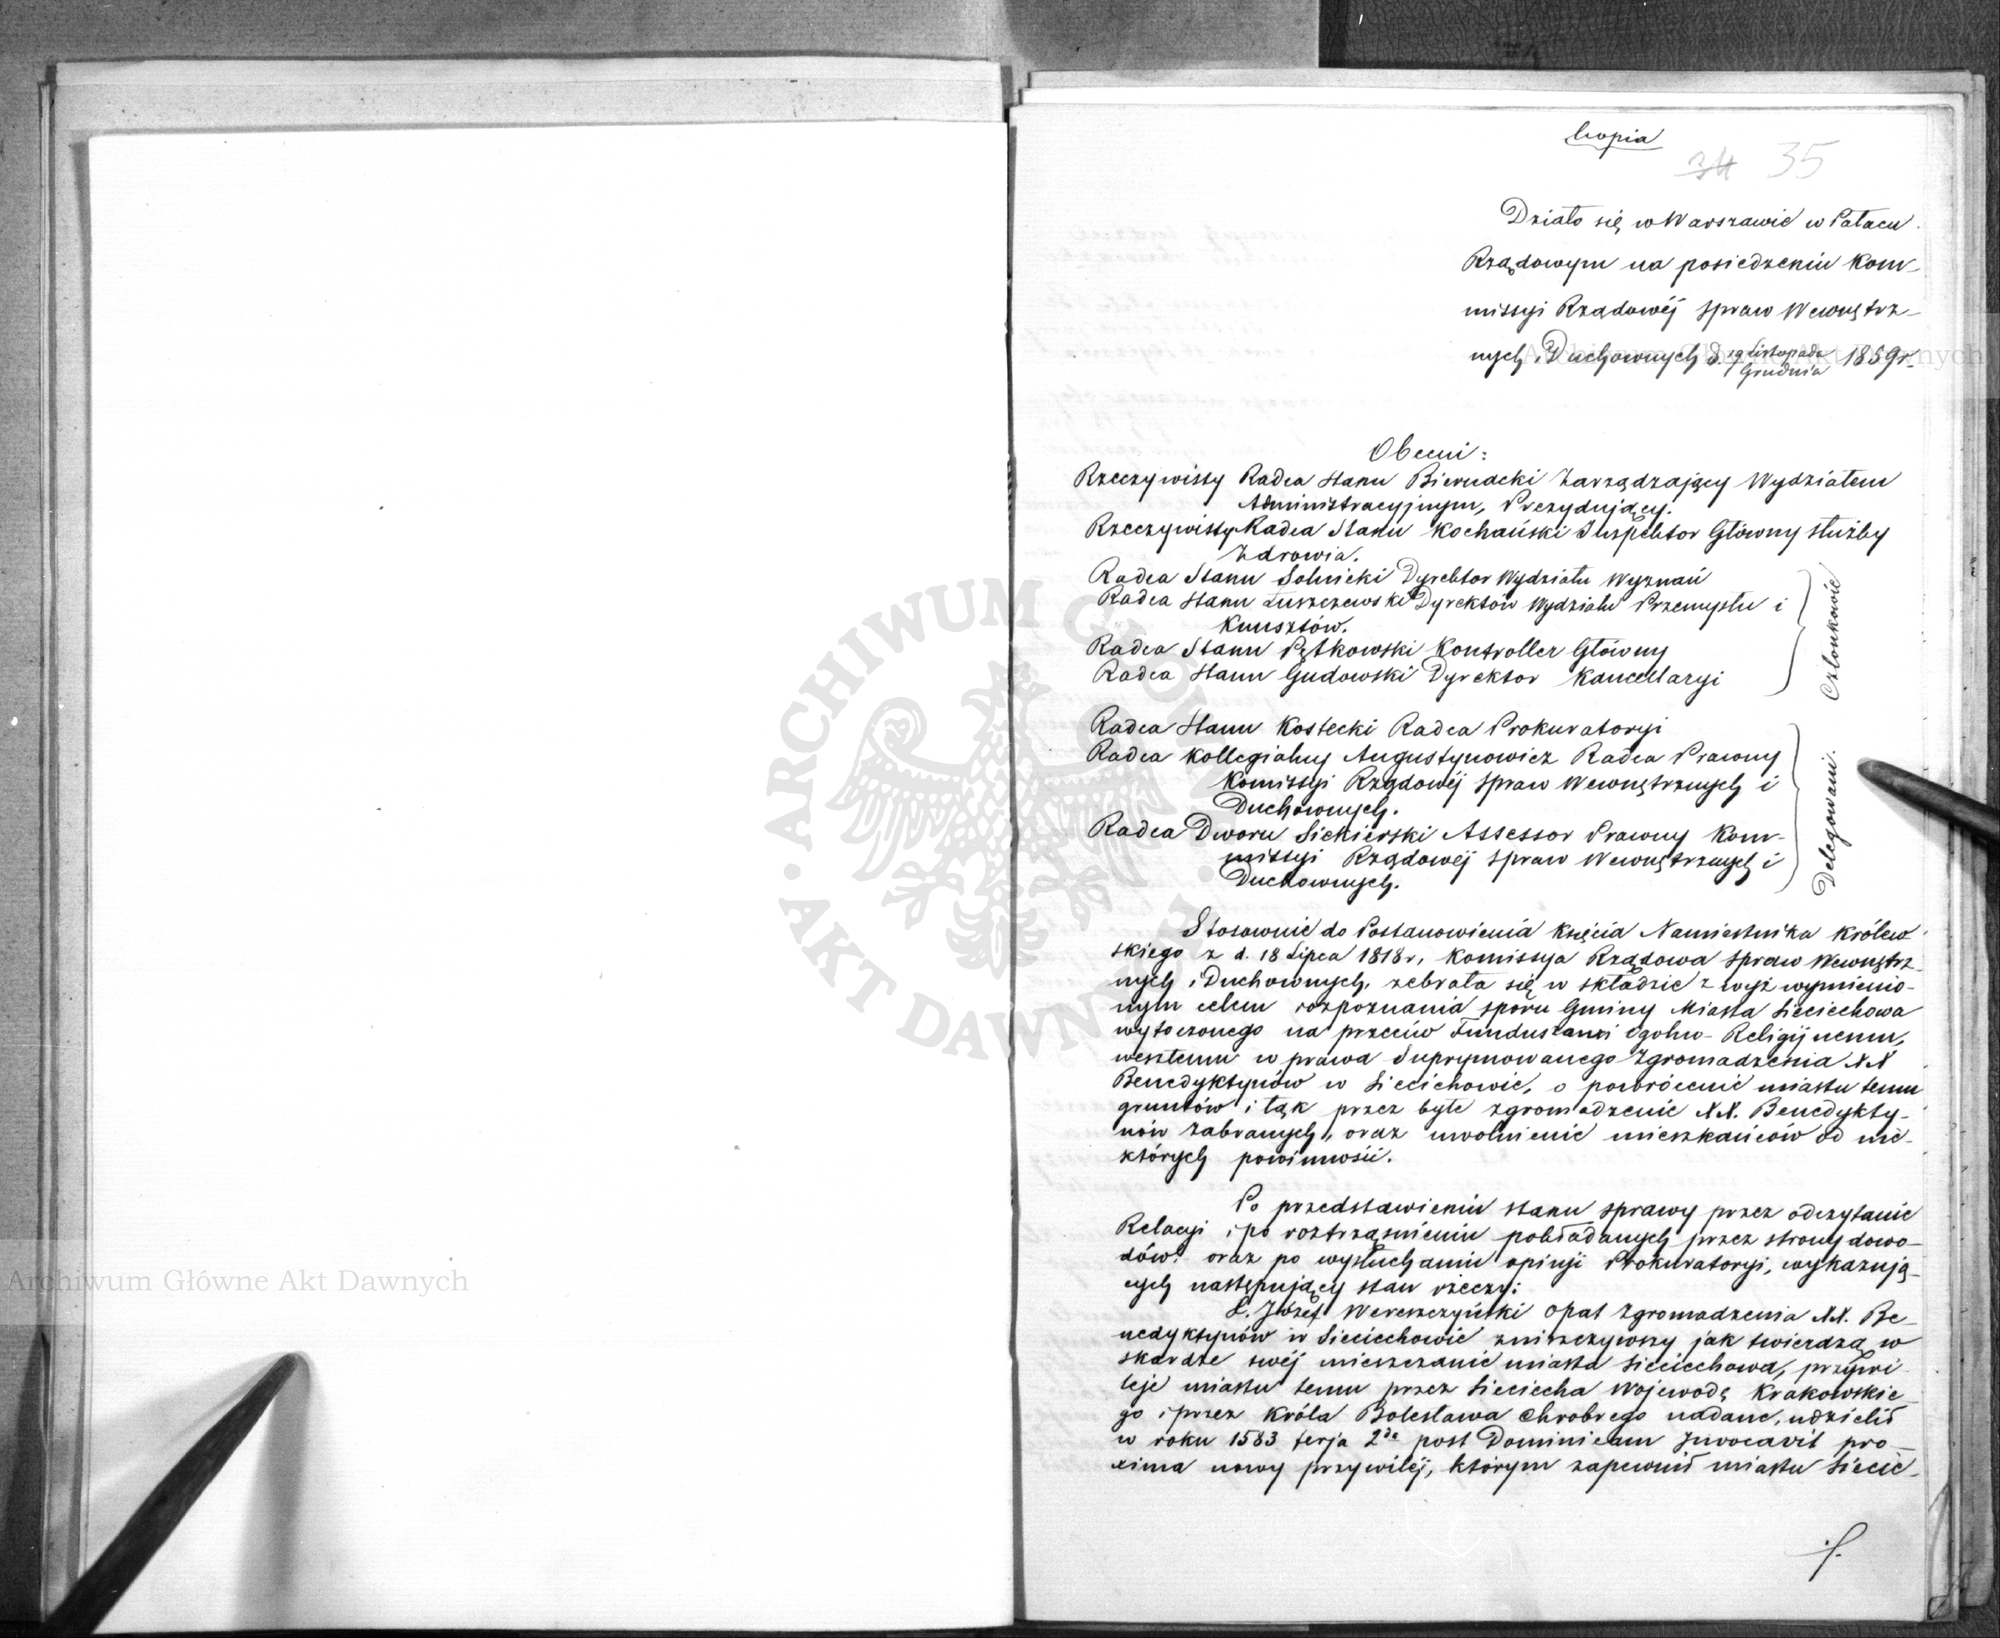 Copia
34 35
Działo się w Warszawie w Pałacu
Rządowym na posiedzeniu Kom-
missyi Rządowéj Spraw Wewnętrz-
nych i Duchownych d. 19 Listopada 1859 r.
Grudnia
Obecni:
Rzeczywisty Radca Stanu Biernacki Zarządzający Wydziałem
Administracyjnym, Prezydujący.
Rzeczywisty Radca Stanu Kochański Inspektor Główny służby
Zdrowia.
Radca Stanu Solnicki Dyrektor Wydziału Wyznań
Radca Stanu Łuszczewski Dyrektor Wydziału Przemysłu i
Kunsztów.
Radca Stanu Pętkowski Kontroller Główny
Radca Stanu Gudowski Dyrektor Kancellaryi
Członkowie
Radca Stanu Kostecki Radca Prokuratoryi
Radca Kollegialny Augustynowicz Radca Prawny
Komissyi Rządowéj Spraw Wewnętrznych i
Duchownych.
Radca Dworu Siekierski Assessor Prawny Kom-
missyi Rządowéj Spraw Wewnętrznych i
Duchownych.
Delegowani.
Stosownie do Postanowienia Księcia Namiestnika Królew-
skiego z d. 18 Lipca 1818 r, Komissya Rządowa Spraw Wewnętrz-
nych i Duchownych, zebrała się w składzie z wyż wymienio-
nym celem rozpoznania sporu Gminy Miasta Sieciechowa
wytoczonego na przeciw Funduszowi Ogólno-Religijnemu,
weszłemu w prawa Suprymowanego Zgromadzenia XX
Benedyktynów w Sieciechowie, o powrócenie miastu temu
gruntów i łąk przez byłe zgromadzenie XX. Benedykty-
nów zabranych, oraz uwolnienie mieszkańców od nie-
których powinności.
Po przedstawieniu stanu sprawy przez odczytanie
Relacyi i po roztrząśnieniu pokładanych przez strony dowo-
dów oraz po wysłuchaniu opinji Prokuratoryi, wykazują-
cych następujący stan rzeczy:
X. Józef Wereszczyński Opat Zgromadzenia XX. Be-
nedyktynów w Sieciechowie zniszczywszy jak twierdzą w
skardze swéj mieszczanie miasta Sieciechowa, przywi-
leje miastu temu przez Sieciecha Wojewodę Krakowskie-
go i przez Króla Bolesława Chrobrego nadane, udzielił
w roku 1583 ferja 2da post Dominicam Invocavit pro-
xima nowy przywiléj, którym zapewnił miastu Siecie-
./.
Archiwum Główne Akt Dawnych
Archiwum Główne Akt Dawnych
ARCHIWUM GŁÓWNE · AKT DAWNYCH